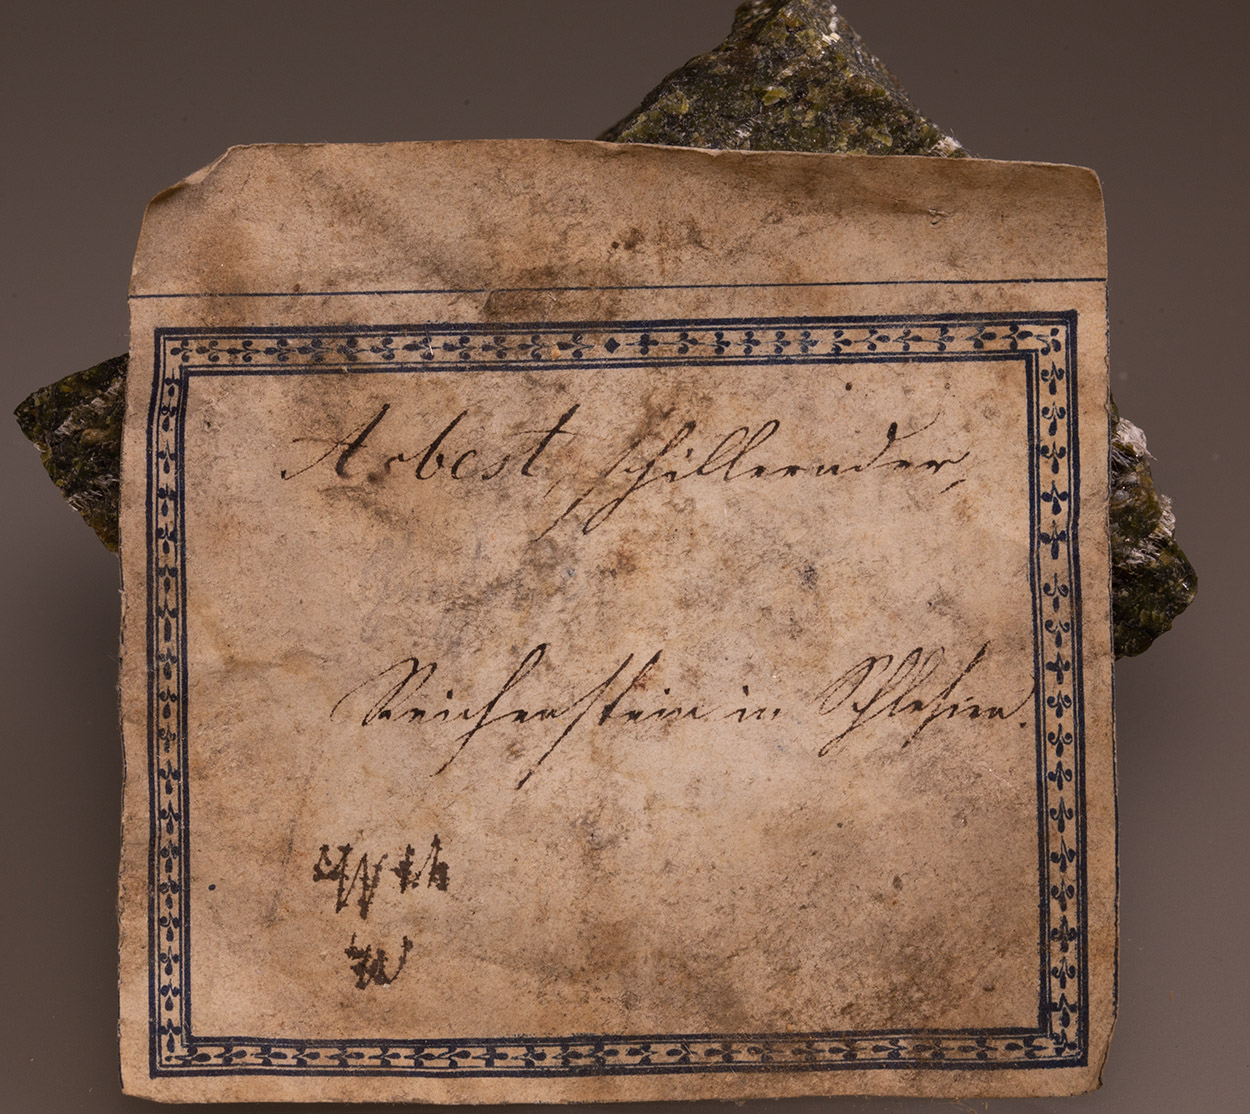 Asbest, schillernder,
Reichenstein in Schlesien.